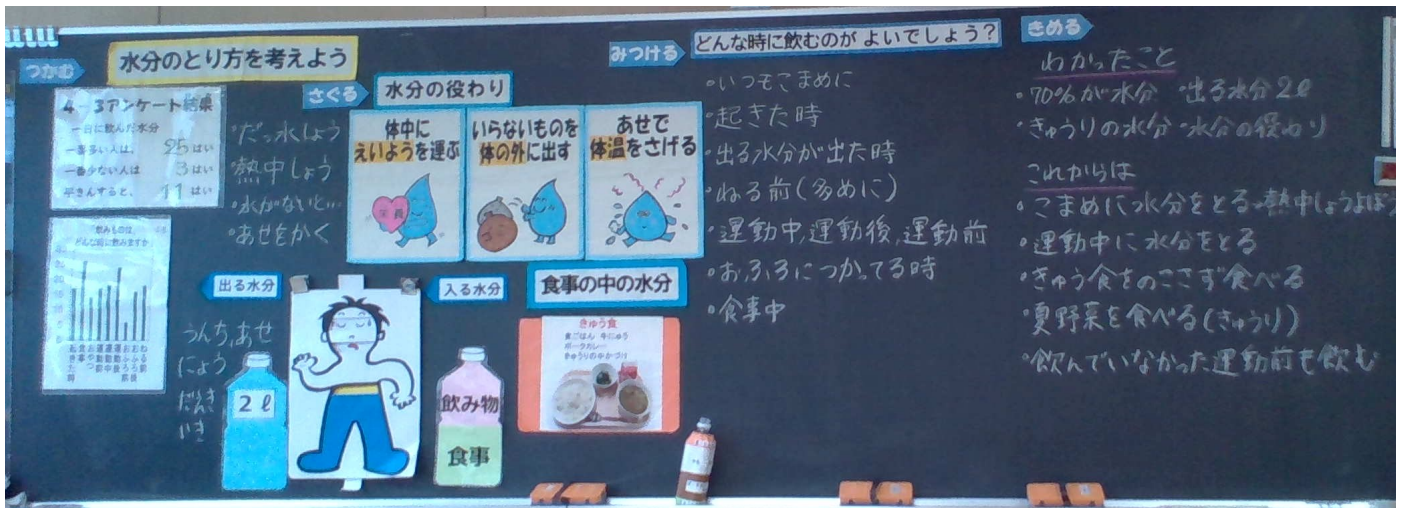 つかむ
水分のとり方を考えよう
4-3アンケート結果
一日に飲んだ水分
一番多い人は、 25はい
一番少ない人は 3はい
平きんすると、 11はい
飲みものは、
どんな時に飲みますか
・だっ水しょう
・熱中しょう
・水がないと…
・あせをかく
さぐる
水分の役わり
体中に
えいようを運ぶ
栄養
いらないものを
体の外に出す
あせで
体温をさげる
出る水分
うんち,あせ
にょう
いき
2ℓ
入る水分
飲み物
食事
食事の中の水分
きゅう食
麦ごはん 牛にゅう
ポークカレー
みつける
どんな時に飲むのが よいでしょう?
・いつもこまめに
・起きた時
・出る水分が出た時
・ねる前(多めに)
・運動中,運動後,運動前
・おふろにつかってる時
・食事中
きめる
わかったこと
・70%が水分 ・出る水分2ℓ
・きゅうりの水分 ・水分の役わり
これからは
・こまめに水分をとる→熱中しょうよぼう
・運動中に水分をとる
・きゅう食をのこさず食べる
・夏野菜を食べる(きゅうり)
・飲んでいなかった運動前も飲む